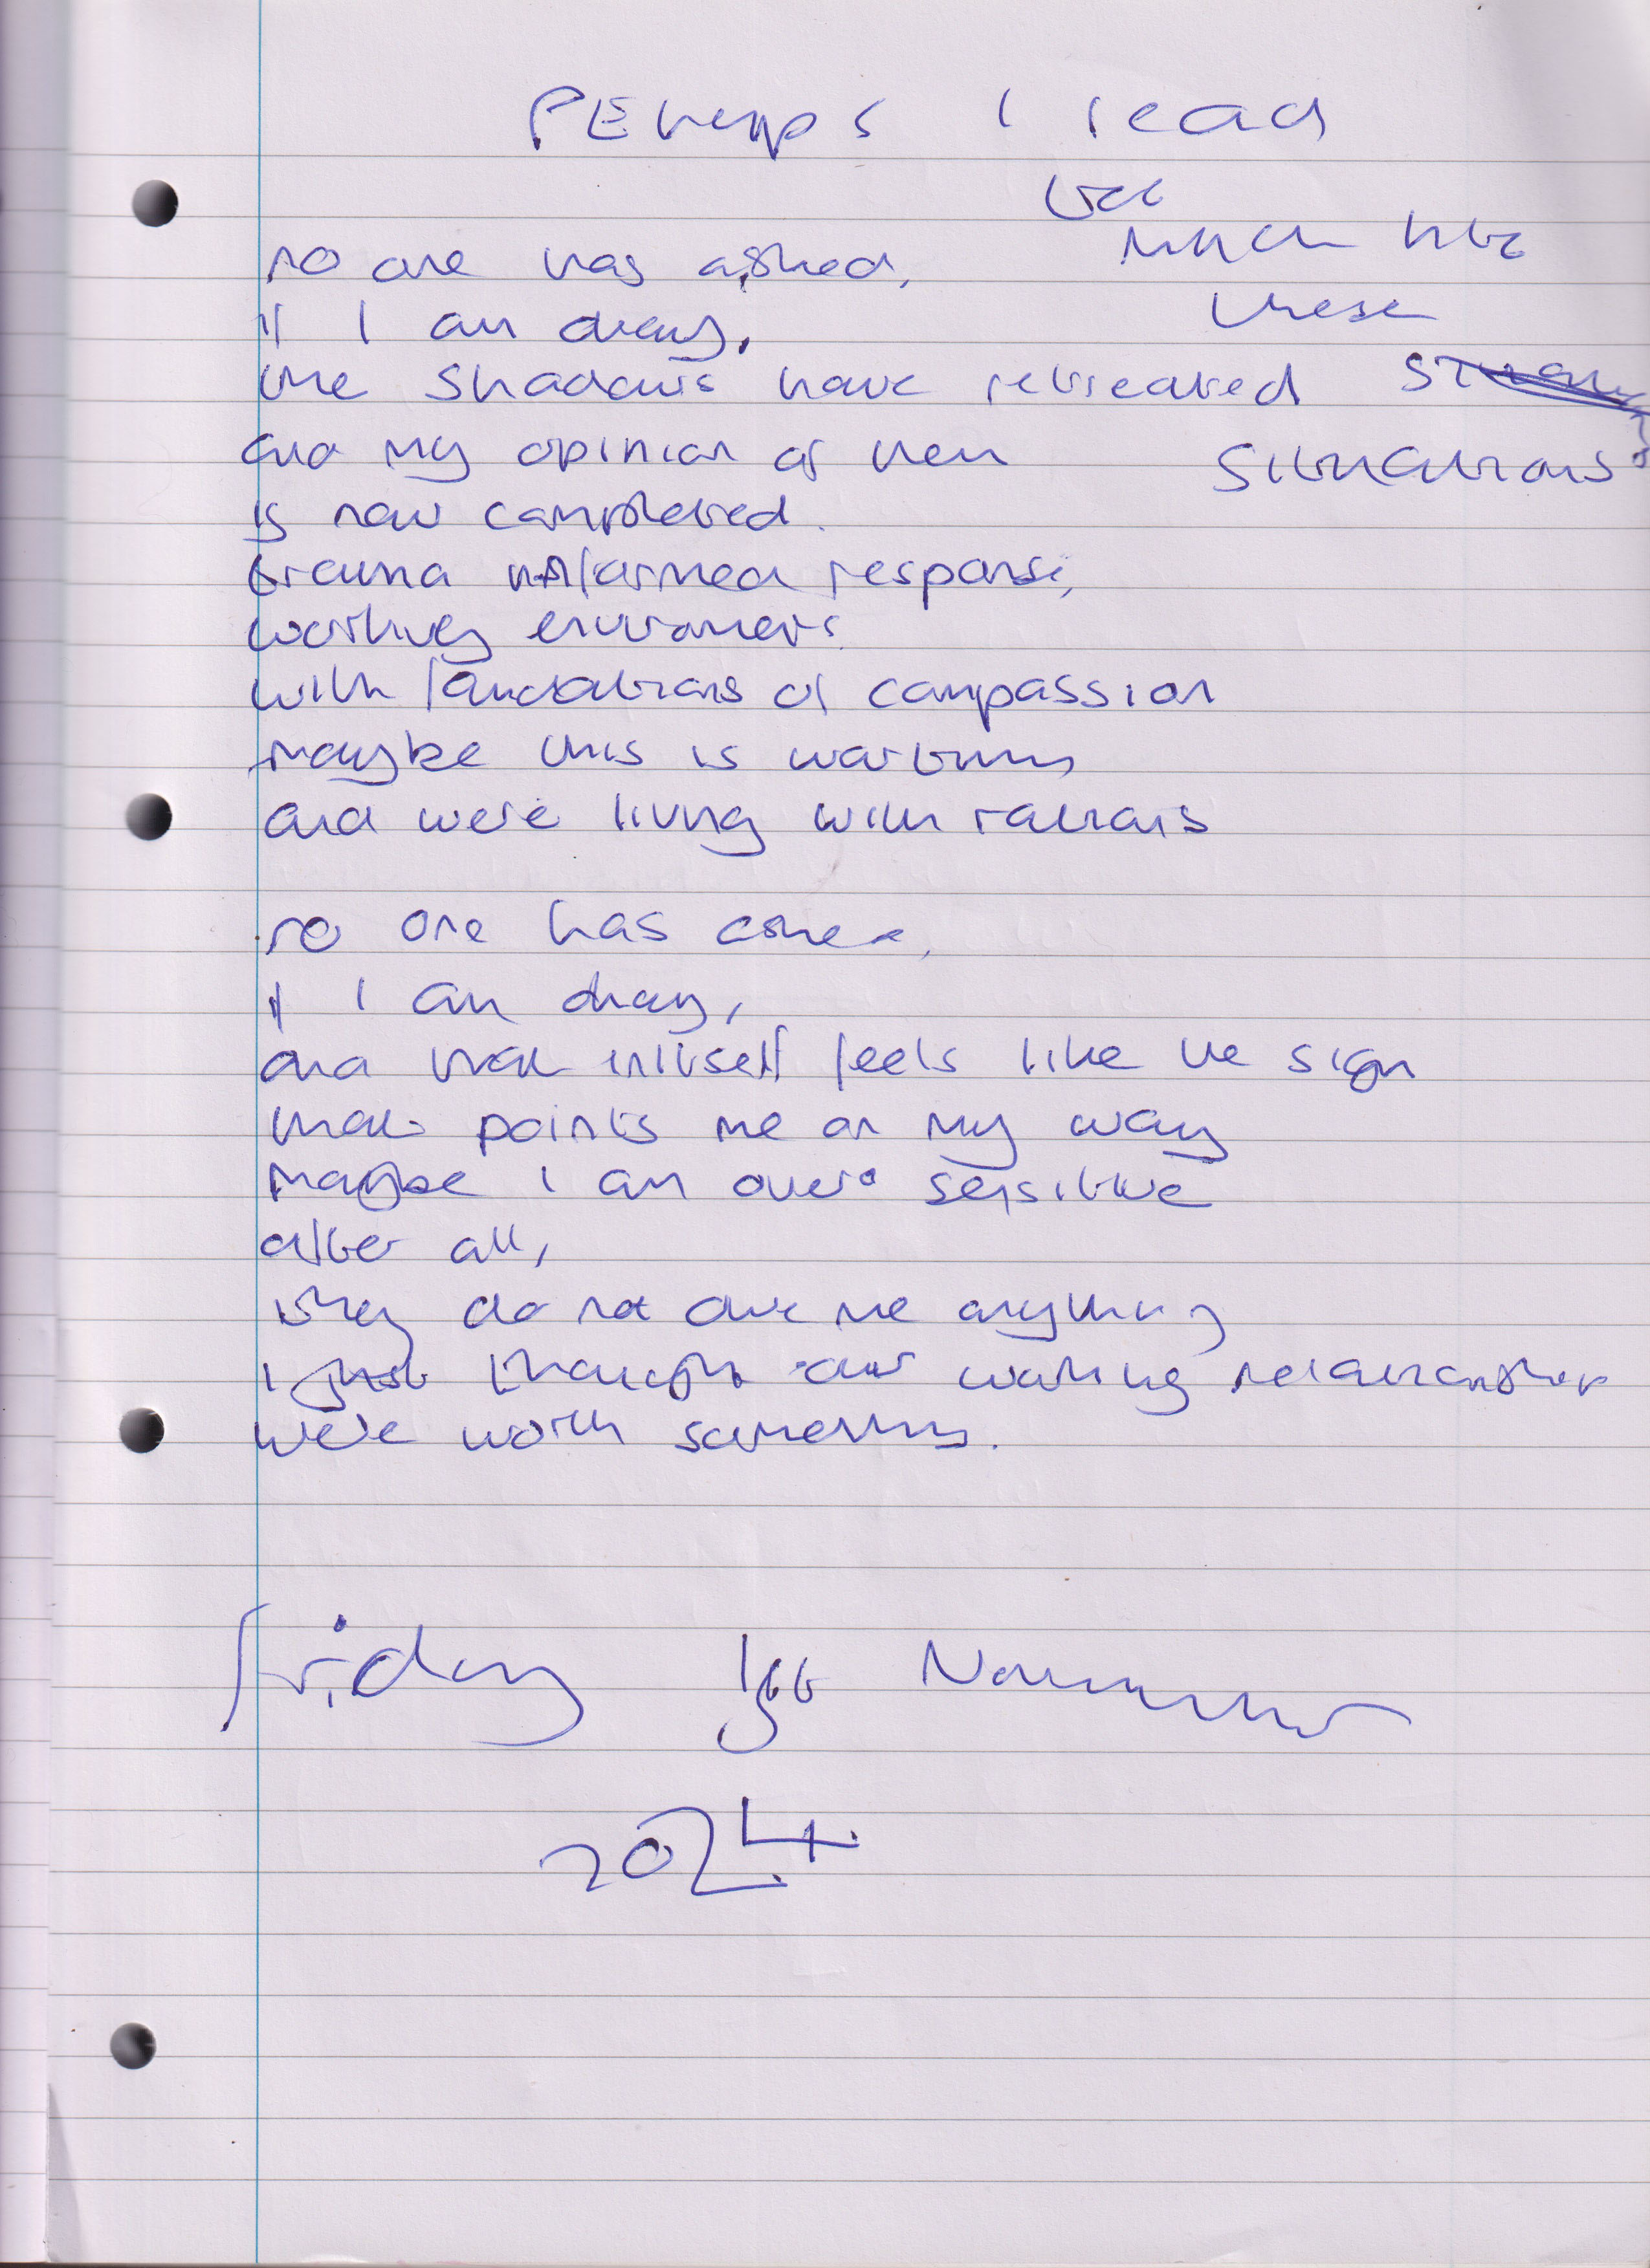 PErhaps I read
too
much into
these
situations
no one has asked,
if I am okay,
the shadows have retreated
and my opinion of them
is now completed.
trauma informed response,
working enviroments
with foundations of compassion
maybe this is wartime
and we're living with rations
no one has asked,
if I am okay,
and that initself feels like the sign
that points me on my way
maybe I am over sensitive
after all,
they do not owe me anything
I just thought our working relationship
were worth something.
friday 1st November
2024.